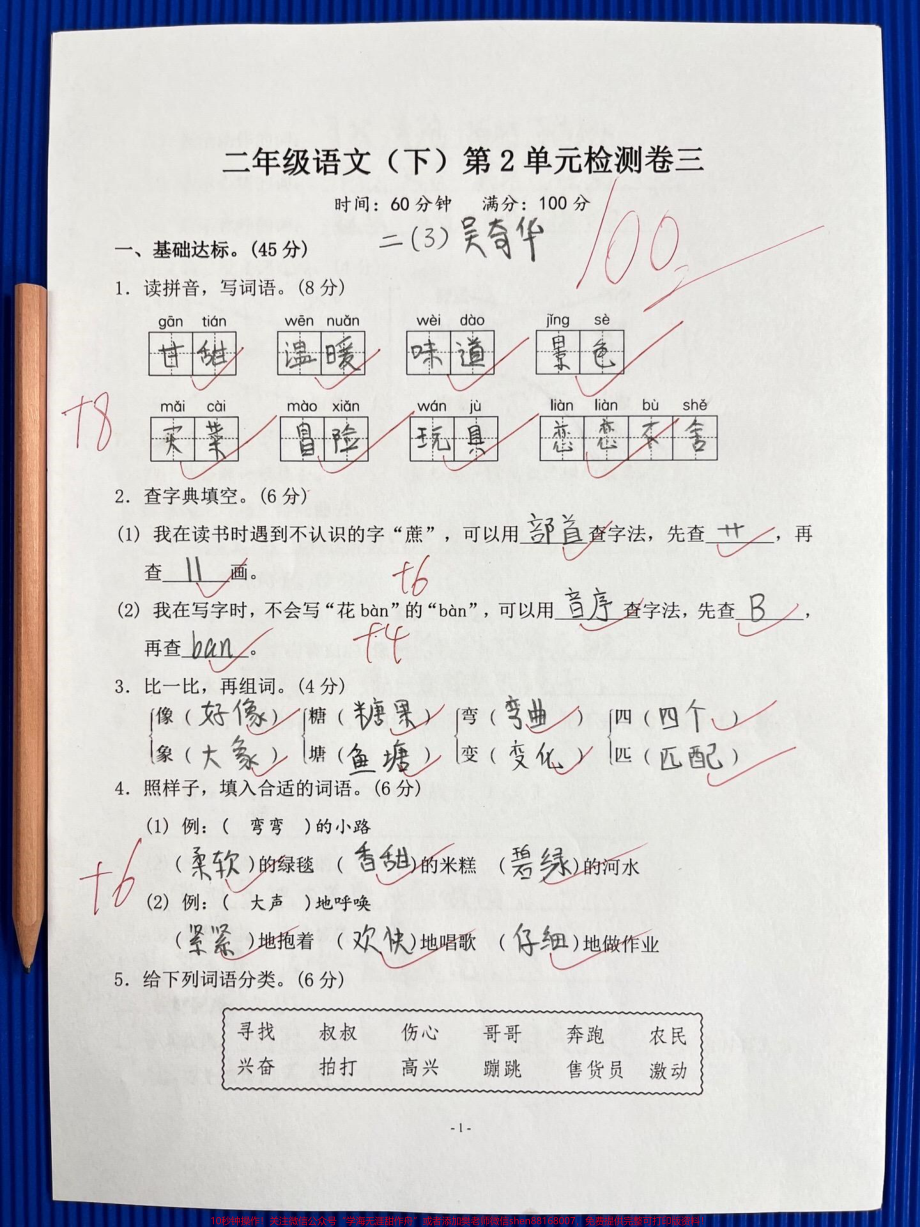 二年级语文（下）第2单元检测卷三
时间：60分钟 满分：100分
二(3)吴奇华
100
一、基础达标。(45分)
1．读拼音，写词语。(8分)
gān tián wēn nuǎn wèi dào jǐng sè
甘甜 温暖 味道 景色
+8
mǎi cài mào xiǎn wán jù liàn liàn bù shě
买菜 冒险 玩具 恋恋不舍
2．查字典填空。(6分)
(1) 我在读书时遇到不认识的字“蔗”，可以用部首查字法，先查艹，再
查11画。
+6
(2) 我在写字时，不会写“花bàn”的“bàn”，可以用音序查字法，先查B，
再查ban。
+4
3．比一比，再组词。(4分)
像（好像） 糖（糖果） 弯（弯曲） 四（四个）
象（大象） 塘（鱼塘） 变（变化） 匹（匹配）
4．照样子，填入合适的词语。(6分)
(1) 例：( 弯弯 )的小路
(柔软)的绿毯 (香甜)的米糕 (碧绿)的河水
+6
(2) 例：( 大声 )地呼唤
(紧紧)地抱着 (欢快)地唱歌 (仔细)地做作业
5．给下列词语分类。(6分)
寻找 叔叔 伤心 哥哥 奔跑 农民
兴奋 拍打 高兴 蹦跳 售货员 激动
- 1 -